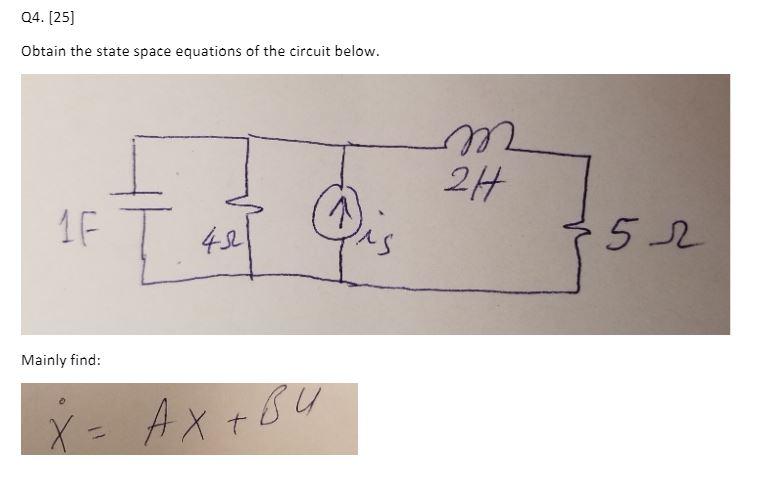 Q4. [25]
Obtain the state space equations of the circuit below.
2H
1F
4Ω
is
5Ω
Mainly find:
ẋ = Ax + Bu